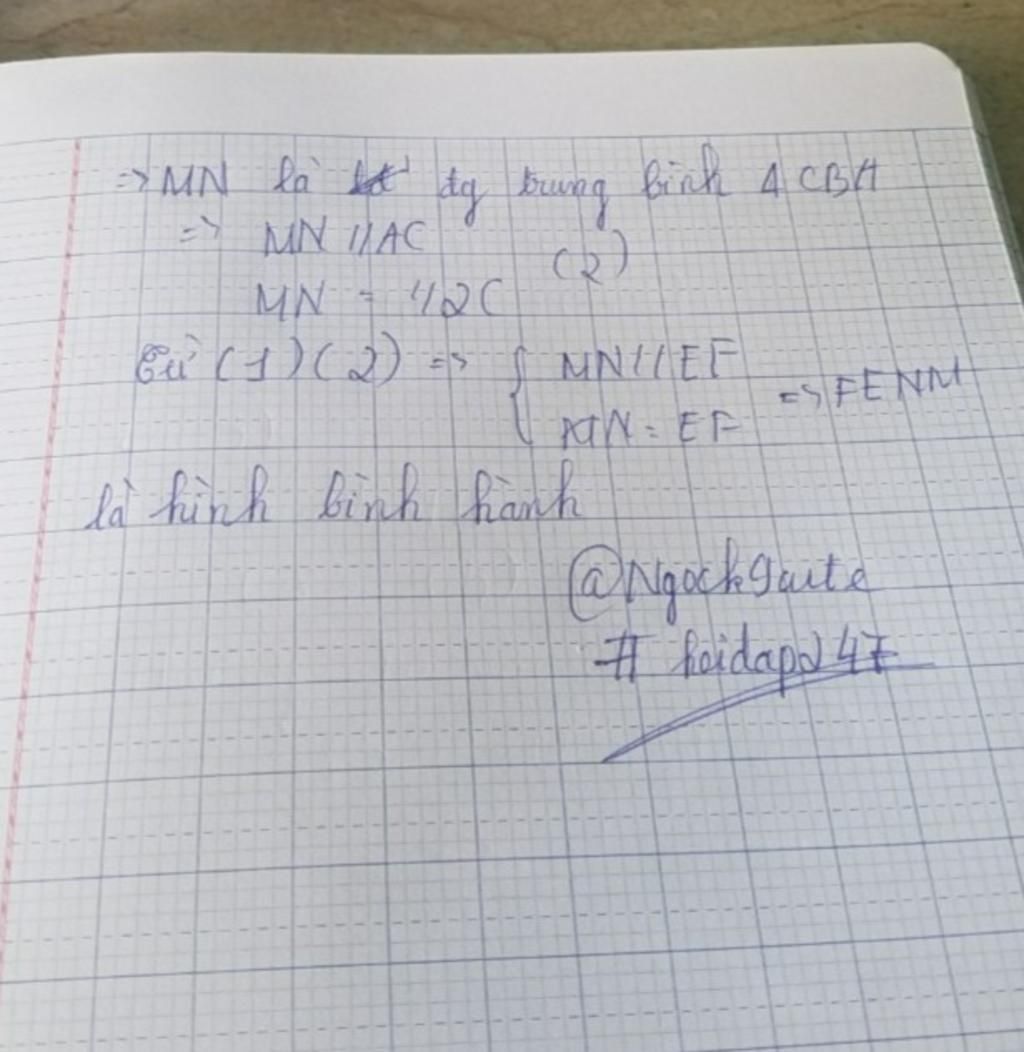 => MN là đg trung bình Δ CBA
=> MN // AC
(2)
MN = 1/2C
Từ (1)(2) => { MN // EF
MN = EF => FENM
là hình bình hành
@Ngockgaute
# hoidap247